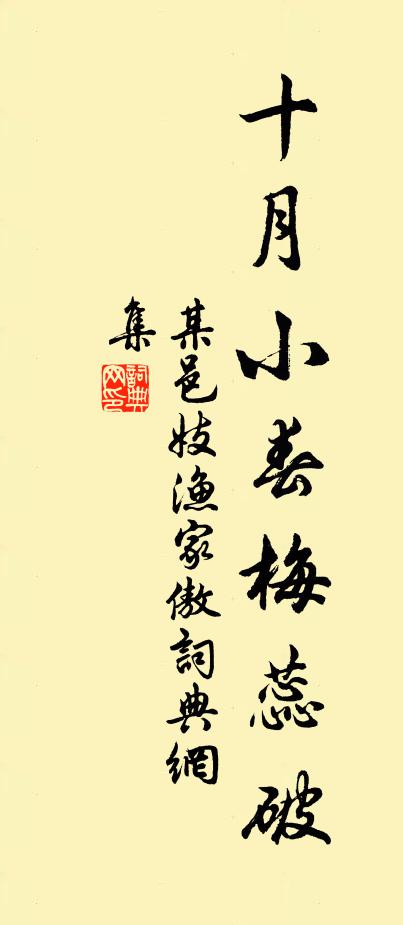 十月小春梅蕊破
某邑妓漁家傲詞典網
集
詞典
网印